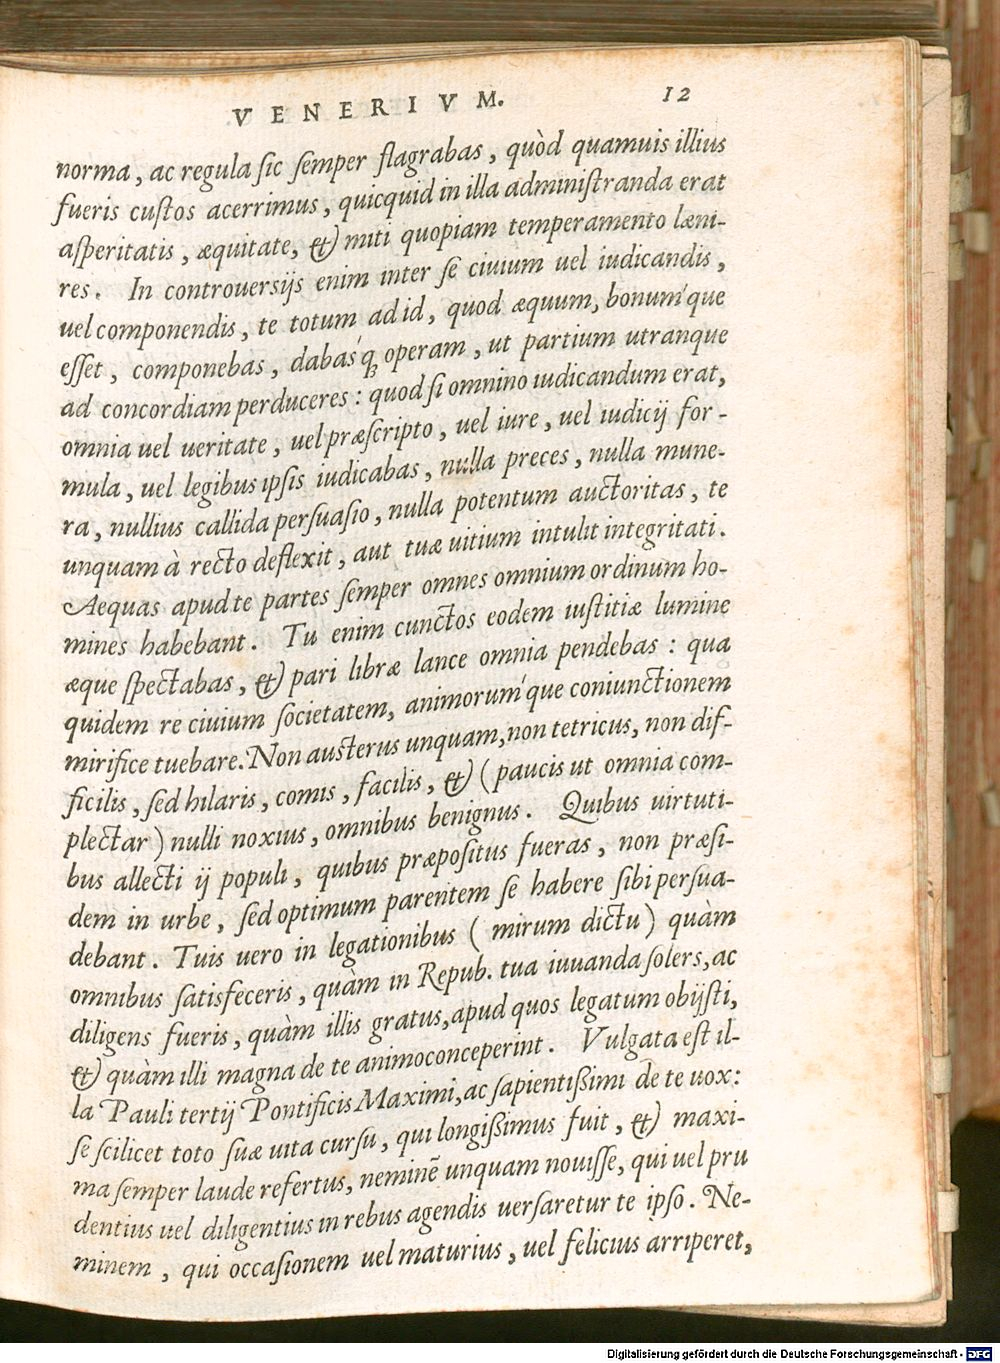 VENERIVM. 12
norma, ac regula sic semper flagrabas, quòd quamuis illius
fueris custos acerrimus, quicquid in illa administranda erat
asperitatis, æquitate, & miti quopiam temperamento læni-
res. In controuersijs enim inter se ciuium uel iudicandis,
uel componendis, te totum ad id, quod æquum, bonum'que
esset, componebas, dabas'q; operam, ut partium utranque
ad concordiam perduceres: quod si omnino iudicandum erat,
omnia uel ueritate, uel præscripto, uel iure, uel iudicij for-
mula, uel legibus ipsis iudicabas, nulla preces, nulla mune-
ra, nullius callida persuasio, nulla potentum auctoritas, te
unquam à recto deflexit, aut tuæ uitium intulit integritati.
Aequas apud te partes semper omnes omnium ordinum ho-
mines habebant. Tu enim cunctos eodem iustitiæ lumine
æque spectabas, & pari libræ lance omnia pendebas: qua
quidem re ciuium societatem, animorum'que coniunctionem
mirifice tuebare. Non austerus unquam, non tetricus, non dif-
ficilis, sed hilaris, comis, facilis, & (paucis ut omnia com-
plectar) nulli noxius, omnibus benignus. Quibus uirtuti-
bus allecti ij populi, quibus præpositus fueras, non præsi-
dem in urbe, sed optimum parentem se habere sibi persua-
debant. Tuis uero in legationibus (mirum dictu) quàm
omnibus satisfeceris, quàm in Repub. tua iuuanda solers, ac
diligens fueris, quàm illis gratus, apud quos legatum obijsti,
& quàm illi magna de te animo conceperint. Vulgata est il-
la Pauli tertij Pontificis Maximi, ac sapientißimi de te uox:
se scilicet toto suæ uita cursu, qui longißimus fuit, & maxi-
ma semper laude refertus, neminẽ unquam nouisse, qui uel pru
dentius uel diligentius in rebus agendis uersaretur te ipso. Ne-
minem, qui occasionem uel maturius, uel felicius arriperet,
Digitalisierung gefördert durch die Deutsche Forschungsgemeinschaft - DFG